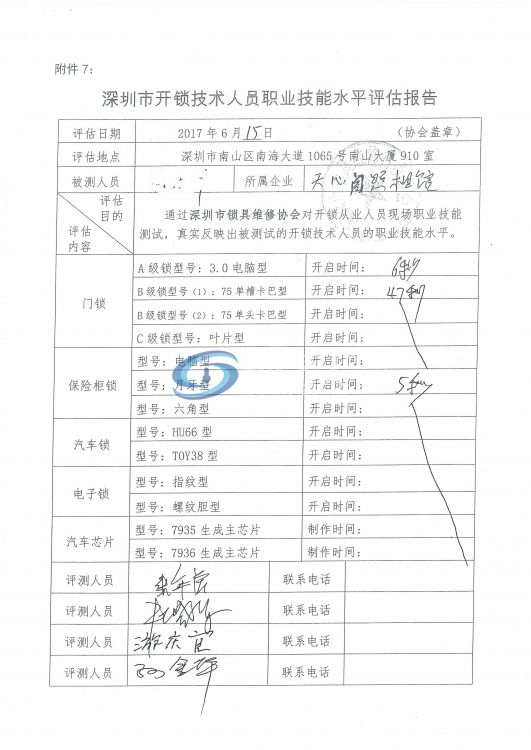 附件 7:
深圳市开锁技术人员职业技能水平评估报告
评估日期 2017 年 6 月 15 日 (协会盖章)
评估地点 深圳市南山区南海大道 1065 号南山大厦 910 室
被测人员 所属企业
评估目的
评估内容
通过深圳市锁具维修协会对开锁从业人员现场职业技能
测试,真实反映出被测试的开锁技术人员的职业技能水平。
门锁
A 级锁型号:3.0 电脑型 开启时间: 6秒
B 级锁型号(1):75 单槽卡巴型 开启时间: 47秒
B 级锁型号(2):75 单头卡巴型 开启时间:
C 级锁型号:叶片型 开启时间:
保险柜锁
型号:电脑型 开启时间:
型号:月牙型 开启时间:
型号:六角型 开启时间:
汽车锁
型号:HU66 型 开启时间:
型号:TOY38 型 开启时间:
电子锁
型号:指纹型 开启时间:
型号:螺纹胆型 开启时间:
汽车芯片
型号:7935 生成主芯片 制作时间:
型号:7936 生成主芯片 制作时间:
评测人员 联系电话
评测人员 联系电话
评测人员 联系电话
评测人员 联系电话